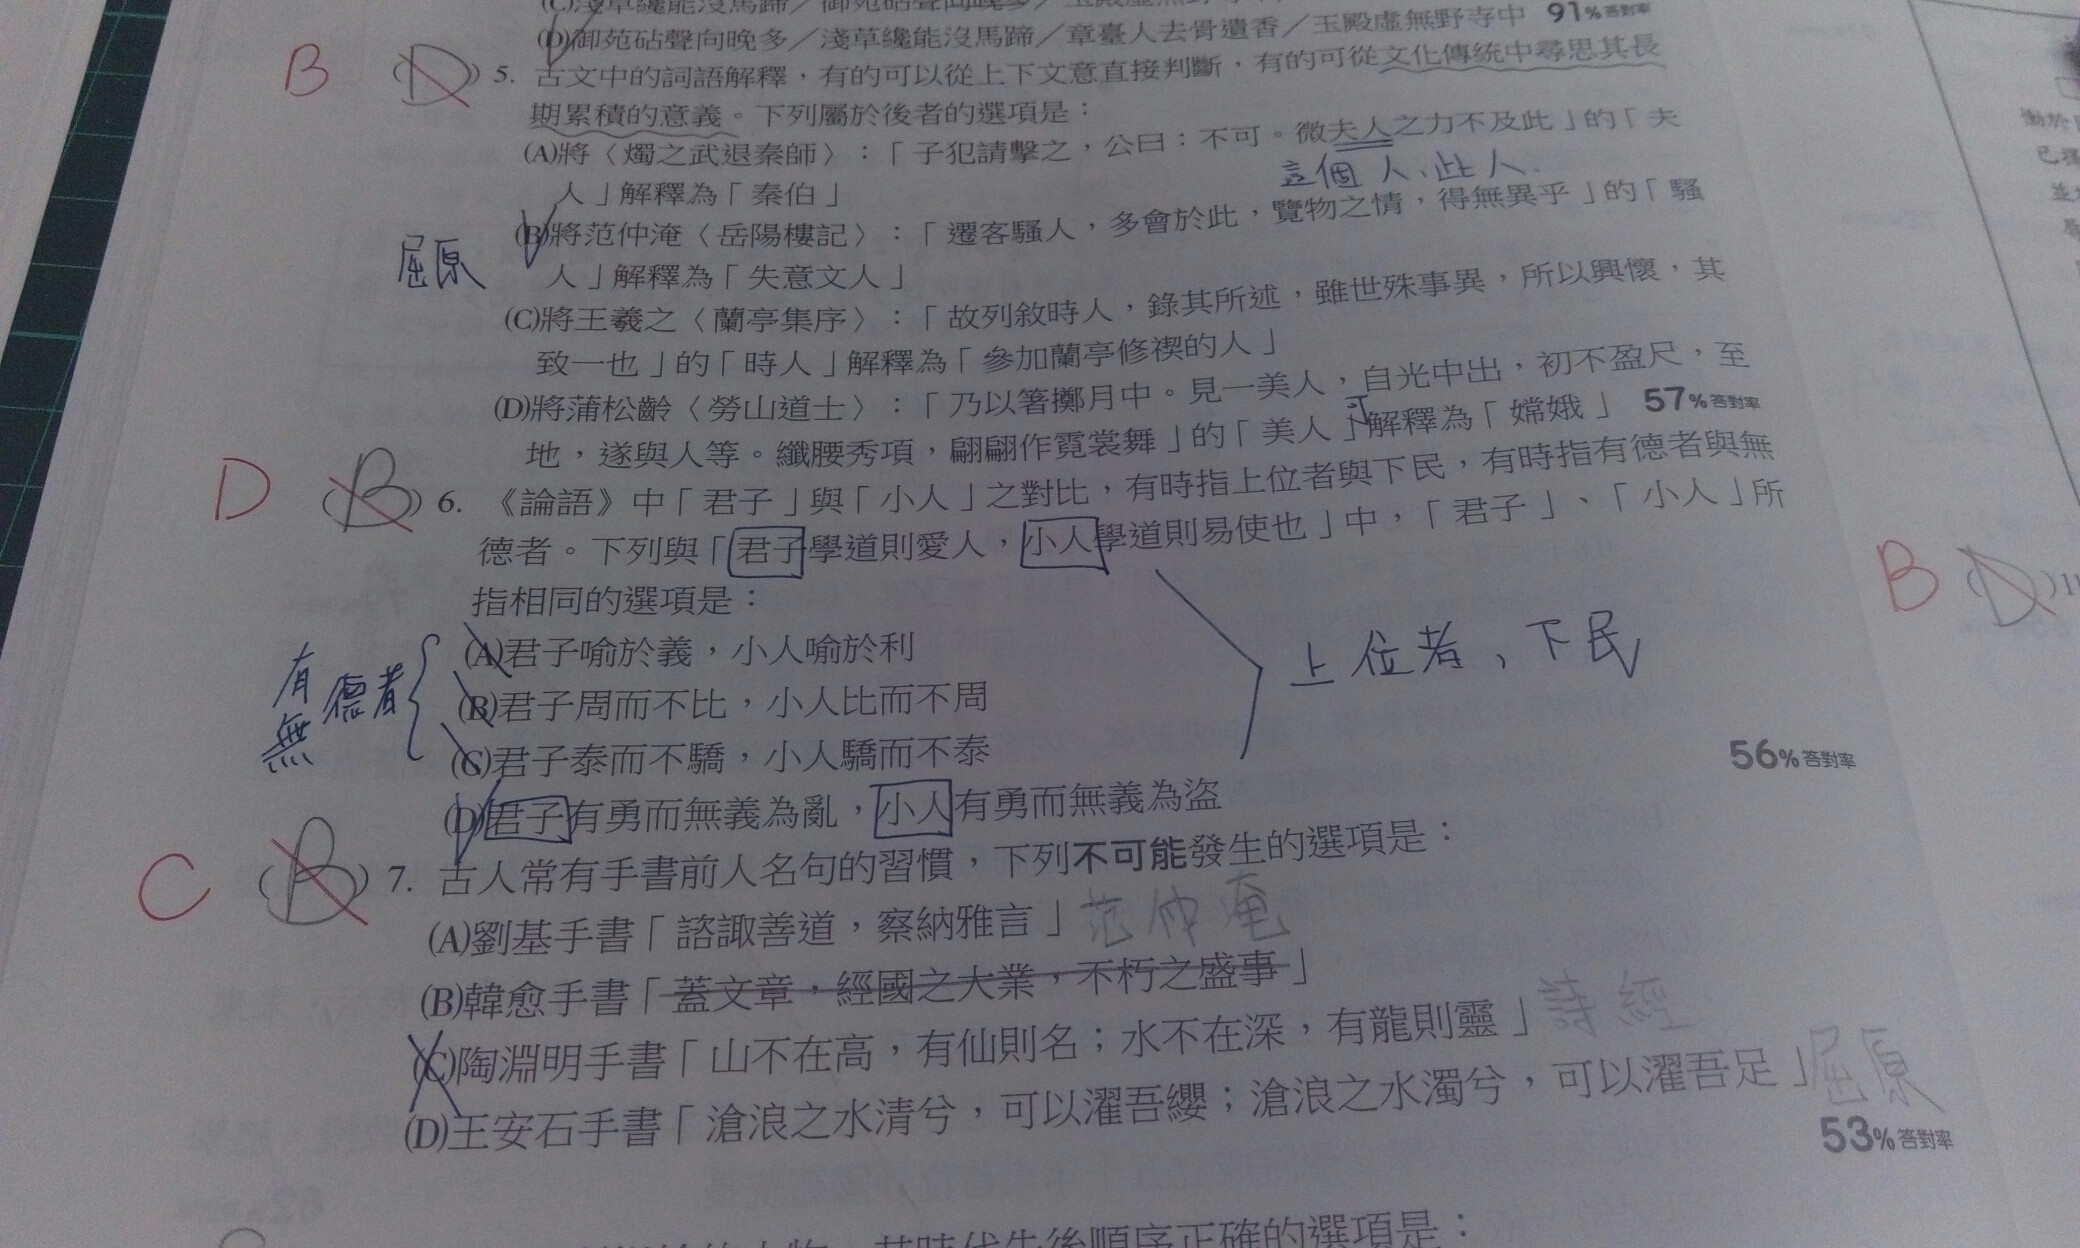 (D)御苑砧聲向晚多／淺草纔能沒馬蹄／章臺人去骨遺香／玉殿虛無野寺中 91%答對率
B (D) 5. 古文中的詞語解釋，有的可以從上下文意直接判斷，有的可從文化傳統中尋思其長
期累積的意義。下列屬於後者的選項是：
(A)將〈燭之武退秦師〉：「子犯請擊之，公曰：不可。微夫人之力不及此」的「夫
這個人、此人.
人」解釋為「秦伯」
(B)將范仲淹〈岳陽樓記〉：「遷客騷人，多會於此，覽物之情，得無異乎」的「騷
屈原
人」解釋為「失意文人」
(C)將王羲之〈蘭亭集序〉：「故列敘時人，錄其所述，雖世殊事異，所以興懷，其
致一也」的「時人」解釋為「參加蘭亭修禊的人」
(D)將蒲松齡〈勞山道士〉：「乃以箸擲月中。見一美人，自光中出，初不盈尺，至
地，遂與人等。纖腰秀項，翩翩作霓裳舞」的「美人」可解釋為「嫦娥」 57%答對率
D (B) 6. 《論語》中「君子」與「小人」之對比，有時指上位者與下民，有時指有德者與無
德者。下列與「君子學道則愛人，小人學道則易使也」中，「君子」、「小人」所
指相同的選項是：
上位者，下民
有無德者
(A)君子喻於義，小人喻於利
(B)君子周而不比，小人比而不周
(C)君子泰而不驕，小人驕而不泰
(D)君子有勇而無義為亂，小人有勇而無義為盜 56%答對率
C (B) 7. 古人常有手書前人名句的習慣，下列不可能發生的選項是：
(A)劉基手書「諮諏善道，察納雅言」范仲淹
(B)韓愈手書「蓋文章，經國之大業，不朽之盛事」
(C)陶淵明手書「山不在高，有仙則名；水不在深，有龍則靈」詩經
(D)王安石手書「滄浪之水清兮，可以濯吾纓；滄浪之水濁兮，可以濯吾足」屈原
53%答對率
其時代先後順序正確的選項是：
B (D) 11